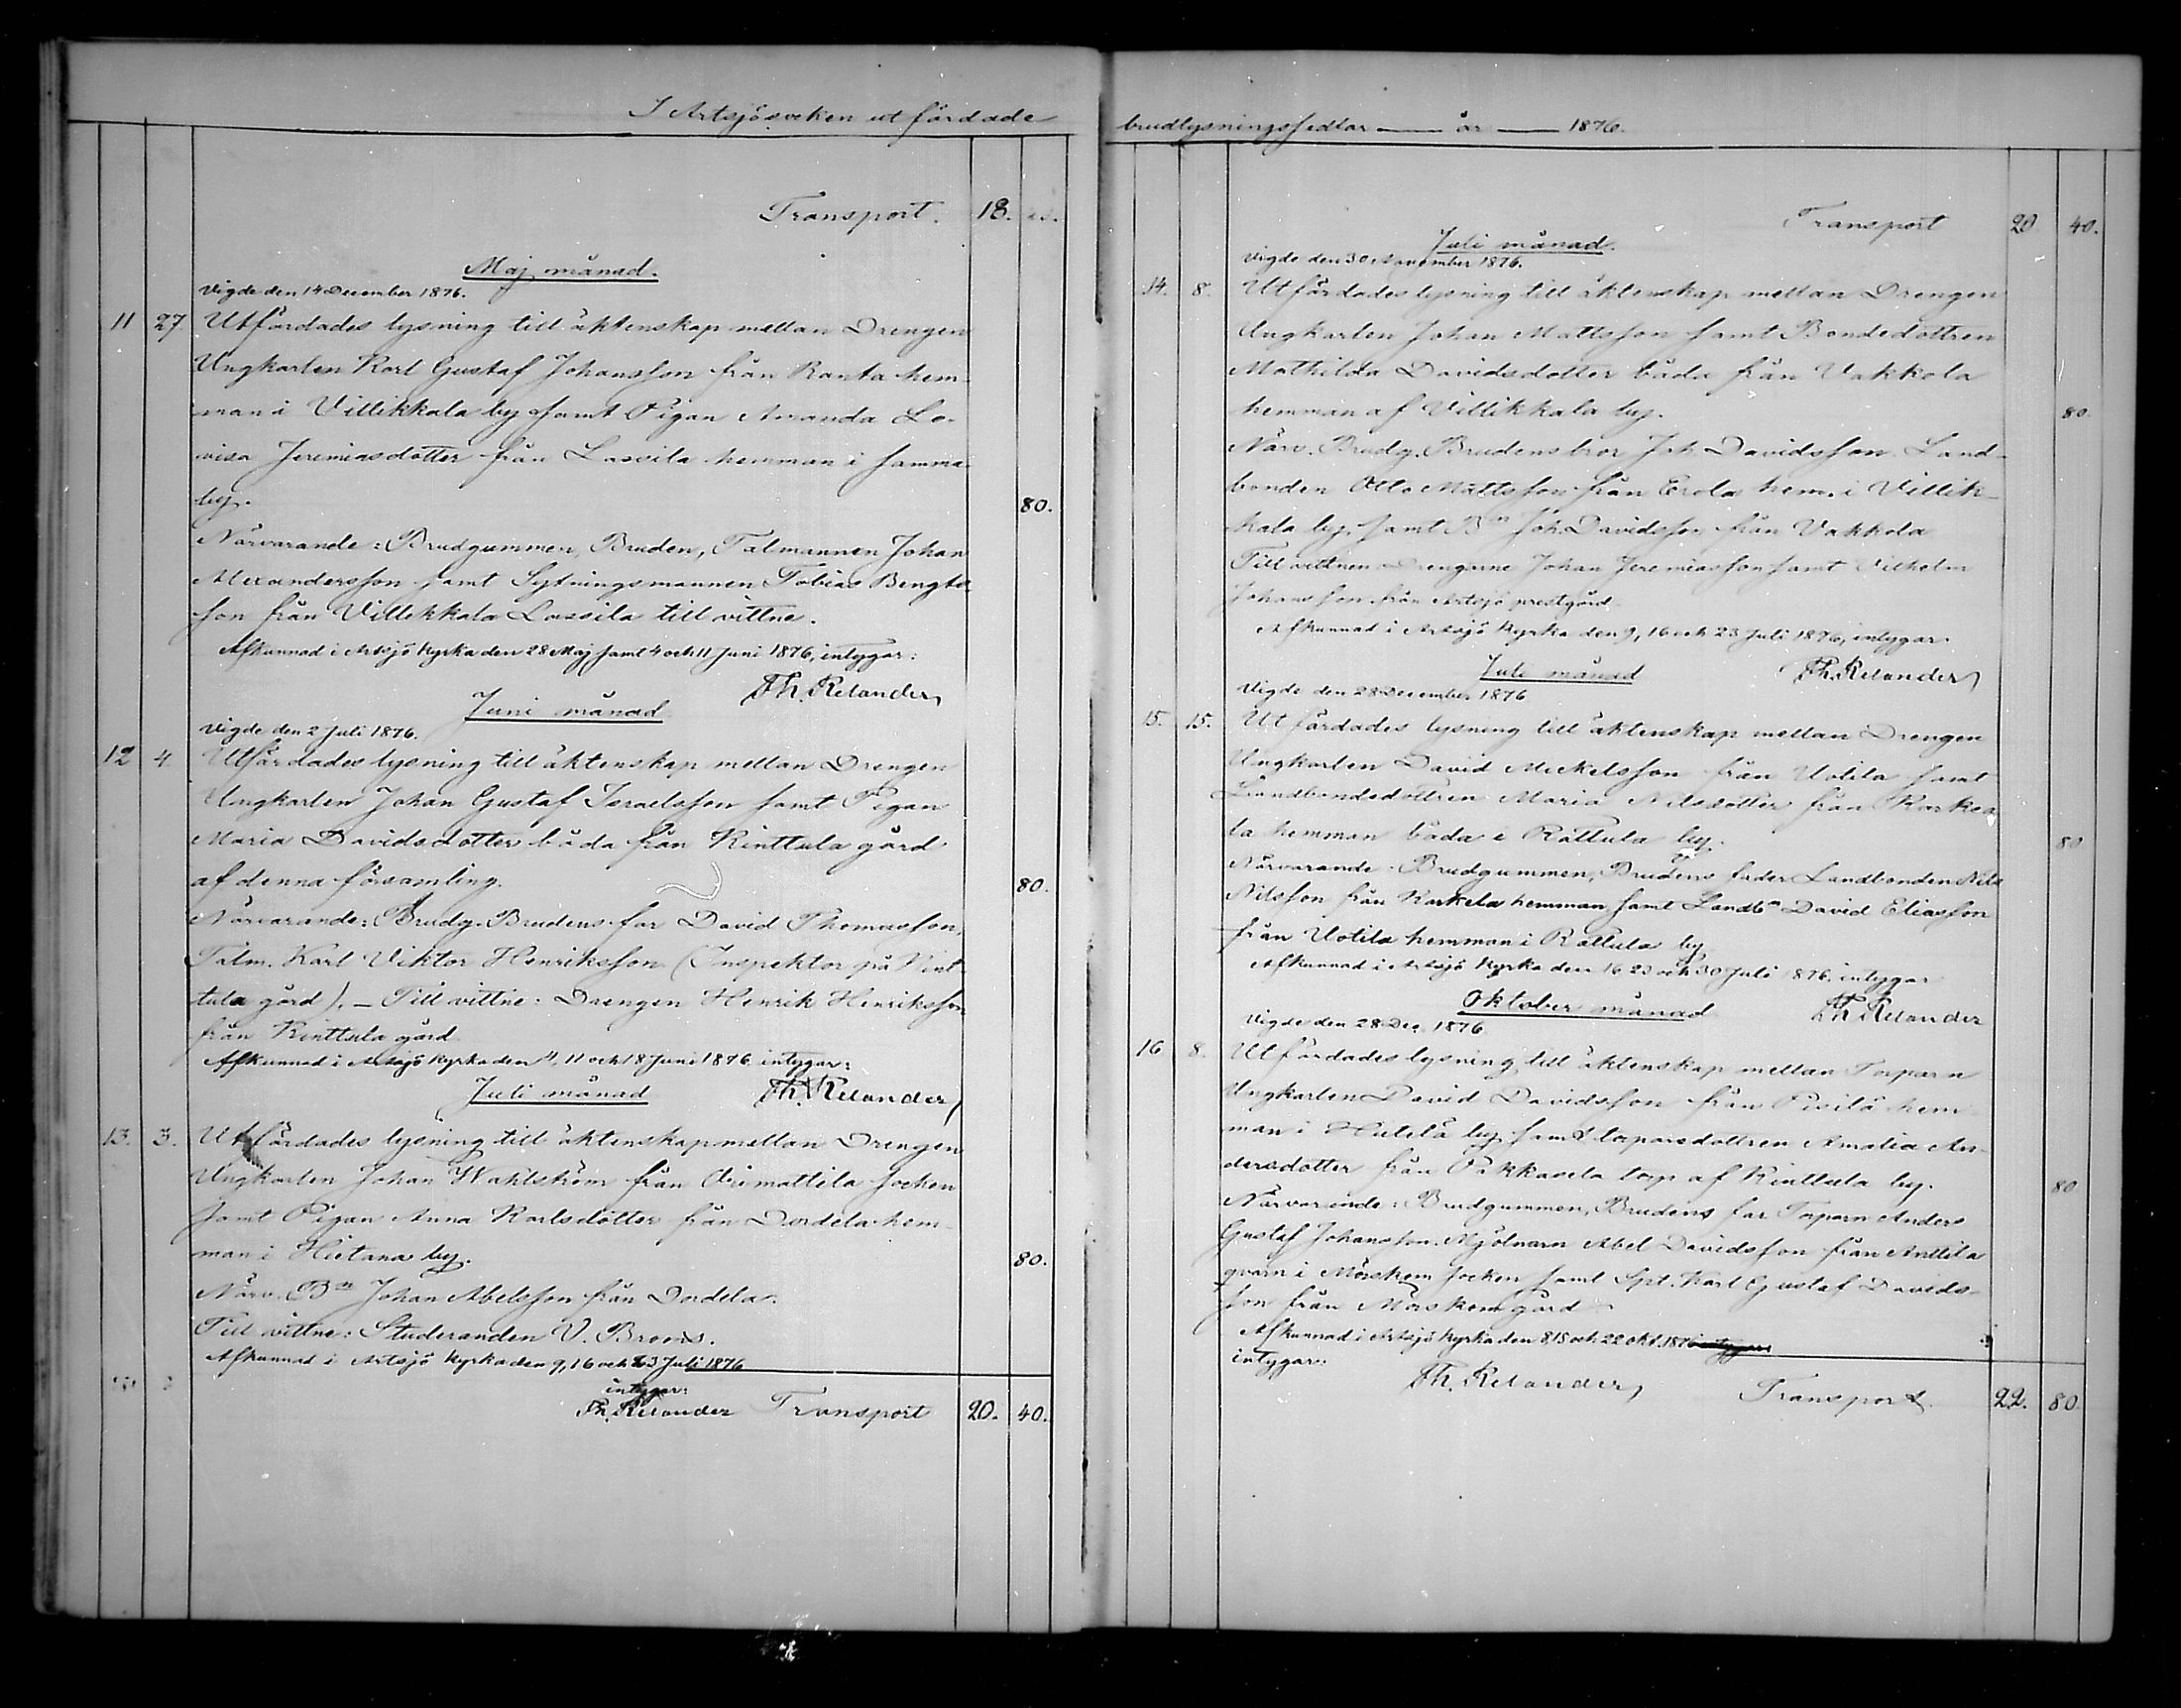 I Artsjö socken utfärdade
Transport. 18.
Maj månad.
Vigde den 14 December 1876.
11 27. Utfärdades lysning till äktenskap mellan Drengen
Ungkarlen Karl Gustaf Johansson från Ranta hem-
man i Villikkala by samt Pigan Amanda Lo-
visa Jeremiasdotter från Lassila hemman i samma
by. 80.
Närvarande: Brudgummen, Bruden, Talmannen Johan
Alexandersson samt Sytningsmannen Tobias Bengts-
son från Villikkala Lassila till vittne.
Afkunnad i Artsjö Kyrka den 28 Maj samt 4 och 11 Juni 1876, intygar:
Th. Relander
Juni månad
Vigde den 2 Juli 1876.
12 4. Utfärdades lysning till äktenskap mellan Drengen
Ungkarlen Johan Gustaf Israelsson samt Pigan
Maria Davidsdotter båda från Kinttula gård
af denna församling. 80.
Närvarande: Brudg. Brudens far David Thomasson,
Talm. Karl Viktor Henriksson (Inspektor på Kint-
tula gård). – Till vittne: Drengen Henrik Henriksson
från Kinttula gård
Afkunnad i Artsjö Kyrka den 4, 11 och 18 Juni 1876 intygar:
Juli månad Th. Relander
13. 3. Utfärdades lysning till äktenskap mellan Drengen
Ungkarlen Johan Wahlström från Orimattila socken
samt Pigan Anna Karlsdotter från Dordela hem-
man i Hietana by. 80.
Närv. Bn Johan Abelsson från Dordela.
Till vittne: Studeranden V. Broms.
Afkunnad i Artsjö Kyrka den 9, 16 och 23 Juli 1876
intygar:
Th. Relander Transport 20. 40.
brudlysningssedlar — år — 1876.
Transport 20 40.
Juli månad.
Vigde den 30 November 1876.
14. 8. Utfärdades lysning till äktenskap mellan Drengen
Ungkarlen Johan Mattsson samt Bondedottren
Mathilda Davidsdotter båda från Vakkola
hemman af Villikkala by. 80.
Närv. Brudg. Brudens bror Joh. Davidsson. Land-
bonden Otto Mattsson från Erola hem. i Villik-
kala by, samt Bn Joh. Davidsson från Vakkola
Till vittnen Drengarne Johan Jeremiasson samt Vilhelm
Johansson från Artsjö prestgård.
Afkunnad i Artsjö Kyrka den 9, 16 och 23 Juli 1876, intygar
Juli månad Th. Relander
Vigde den 28 December 1876
15. 15. Utfärdades lysning till äktenskap mellan Drengen
Ungkarlen David Mickelsson från Uotila samt
Landbondedottren Maria Nilsdotter från Karke-
la hemman båda i Rättula by. 80
Närvarande Brudgummen, Brudens fader Landbonden Nils
Nilsson från Karkela hemman samt Landbn David Eliasson
från Uotila hemman i Rättula by
Afkunnad i Artsjö Kyrka den 16 23 och 30 Juli 1876. intygar
Oktober månad Th. Relander
Vigde den 28 Dec. 1876
16 8. Utfärdades lysning till äktenskap mellan Torparn
Ungkarlen David Davidsson från Pisilä hem-
man i Hutilä by samt torparedottren Amalia An-
dersdotter från Pakkasela torp af Kinttula by. 80
Närvarande: Brudgummen, Brudens far Torparn Anders
Gustaf Johansson. Mjölnarn Abel Davidsson från Anttila
qvarn i Mörskom socken samt Spt. Karl Gustaf Davids-
son från Mörskom gård
Afkunnad i Artsjö Kyrka den 8, 15 och 22 Okt. 1876 intygar:
intygar:
Th. Relander Transport. 22. 80.